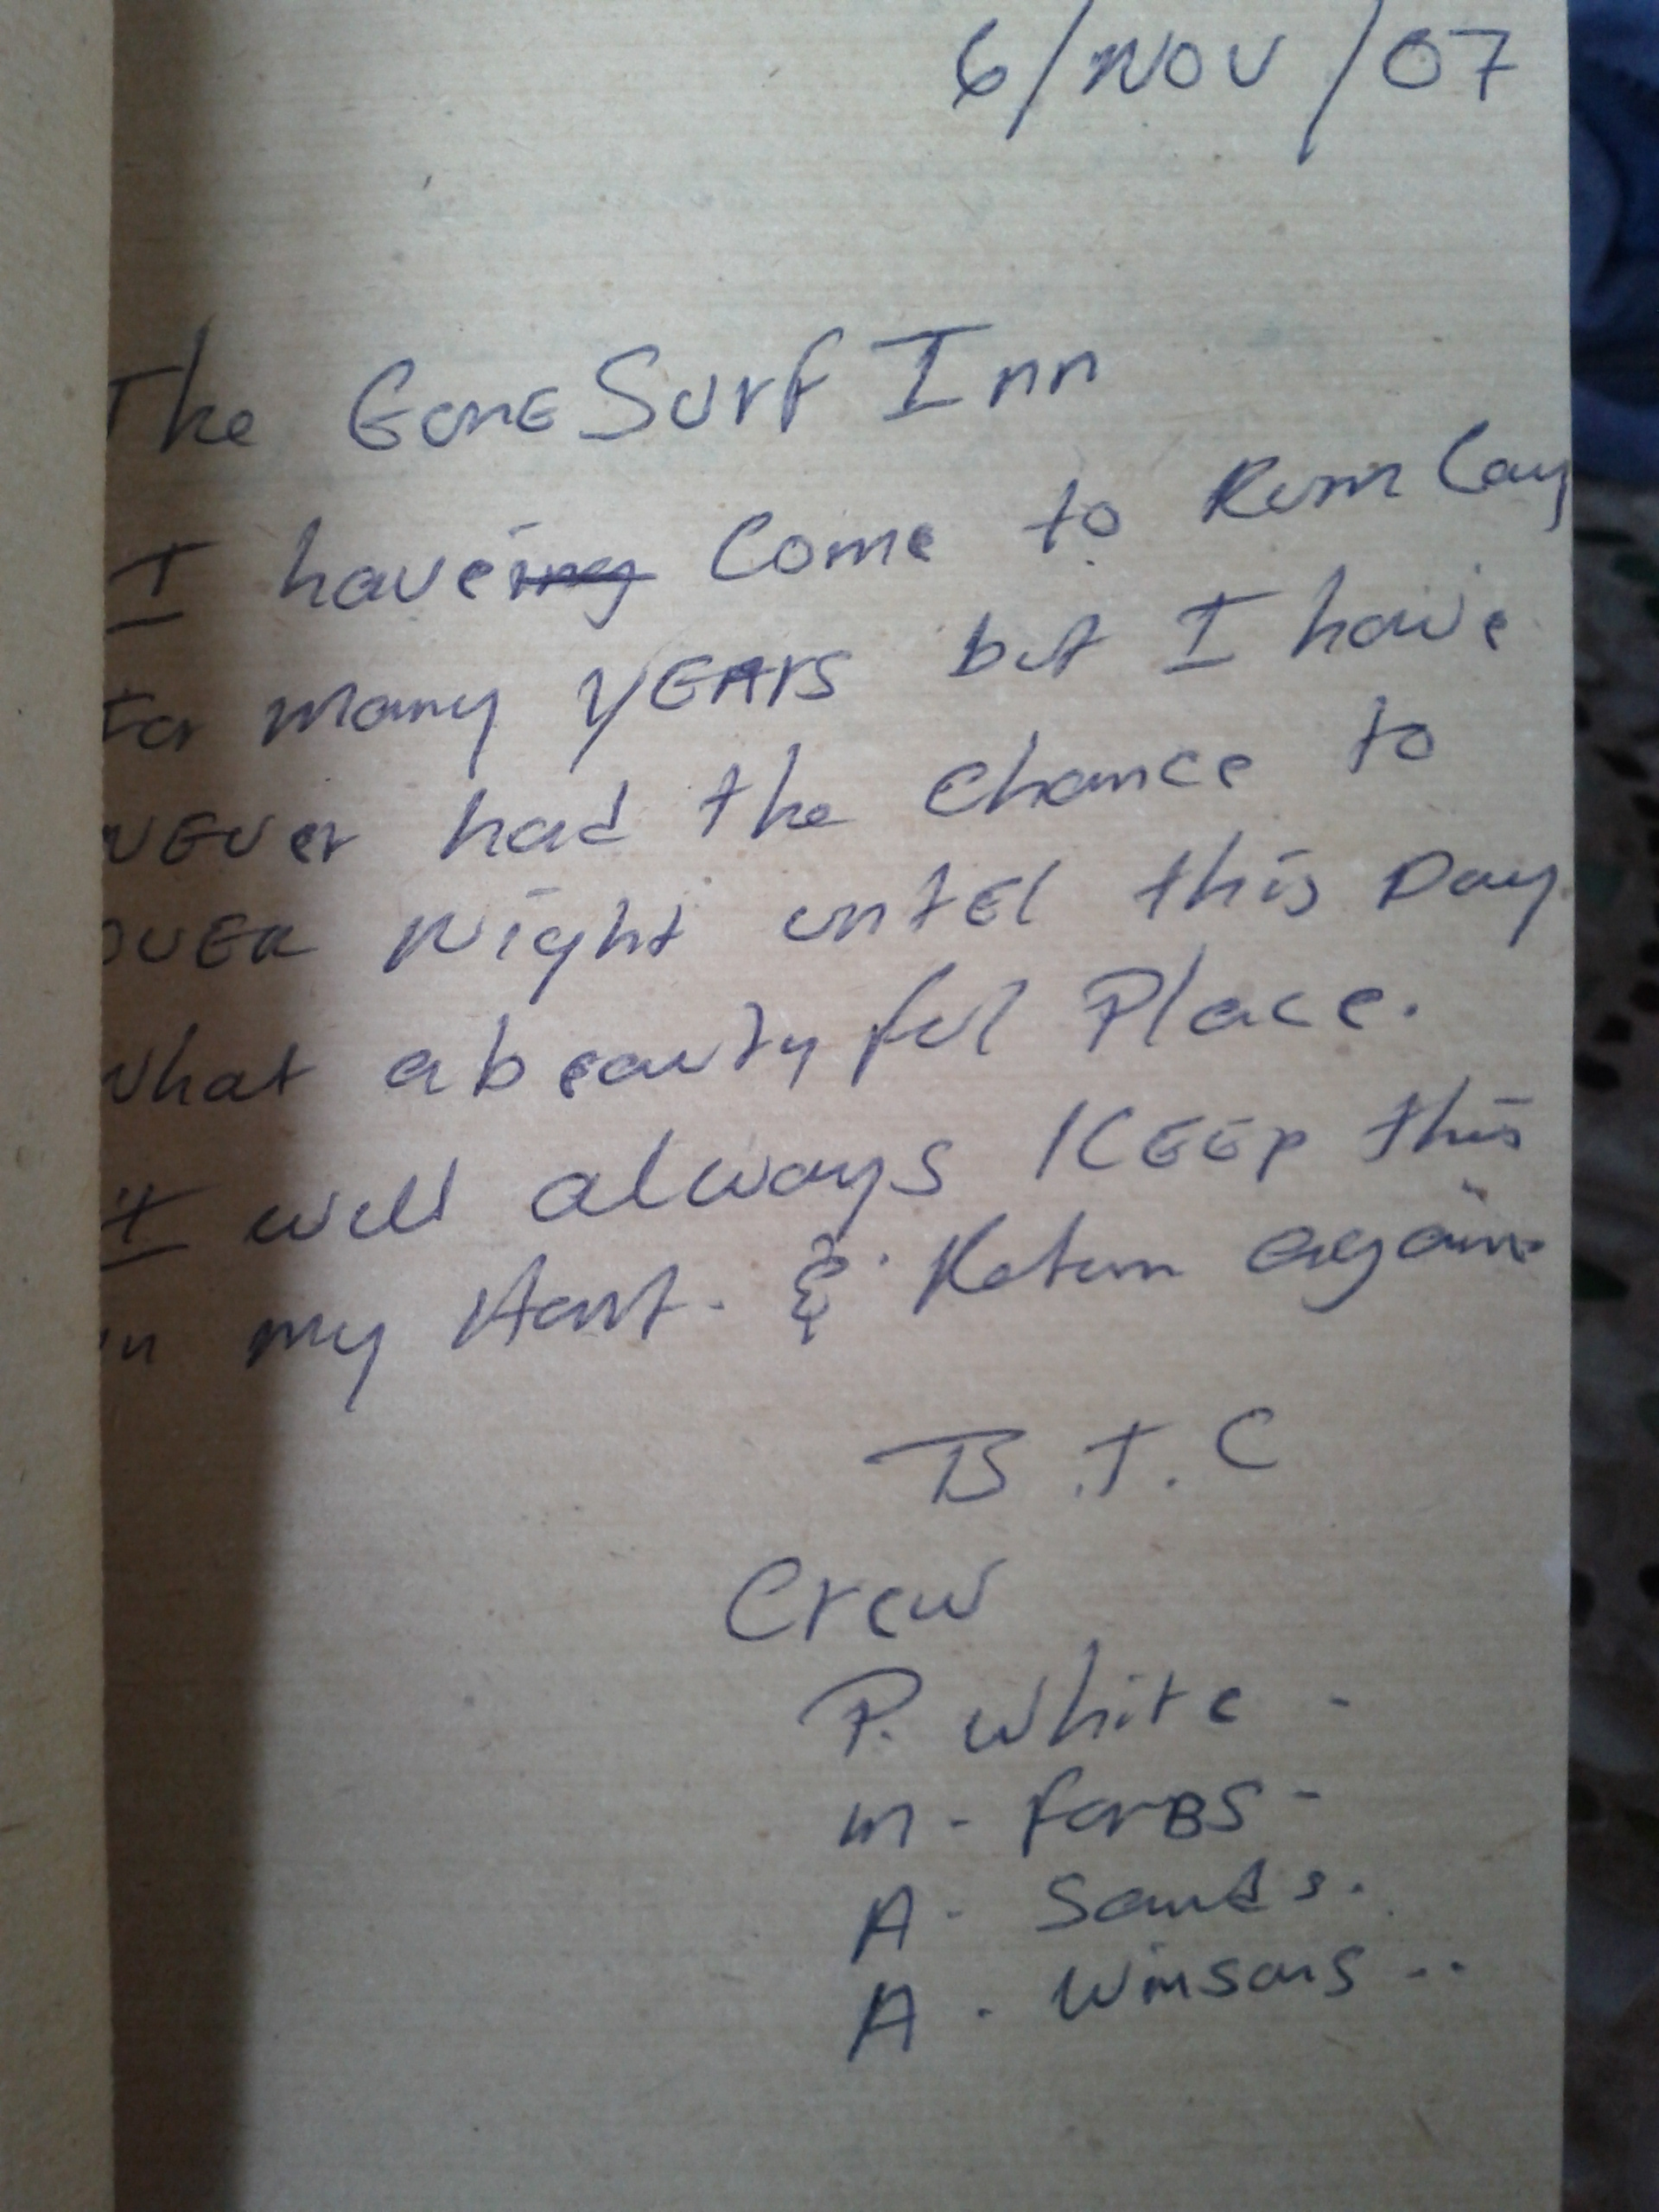 6/NOV/07
The GONE Surf Inn
I have Come to Rum Cay
for many YEArS but I have
NEVer had the chance to
OVER Night untEl this Day
what a beautyful Place.
I will always KEEP this
in my Hart. & Return again
B.T.C
Crew
P. White -
m - forBS -
A - Sands.
A. Winsons ..